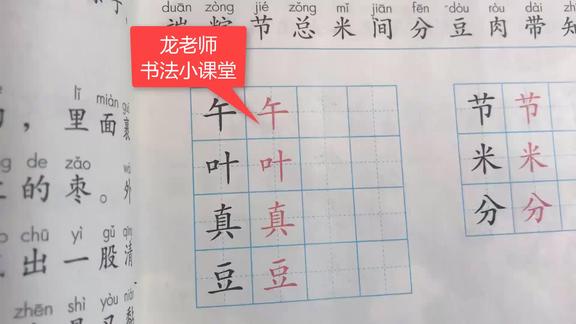 duān zòng jié zǒng mǐ jiān fēn dòu ròu dài
端 粽 节 总 米 间 分 豆 肉 带 知
龙老师
书法小课堂
lǐ miàn
，里面裹
de zǎo
的枣。外
chū yì gǔ
出一股清
zhēn shì yòu
午 午
叶 叶
真 真
豆 豆
节 节
米 米
分 分